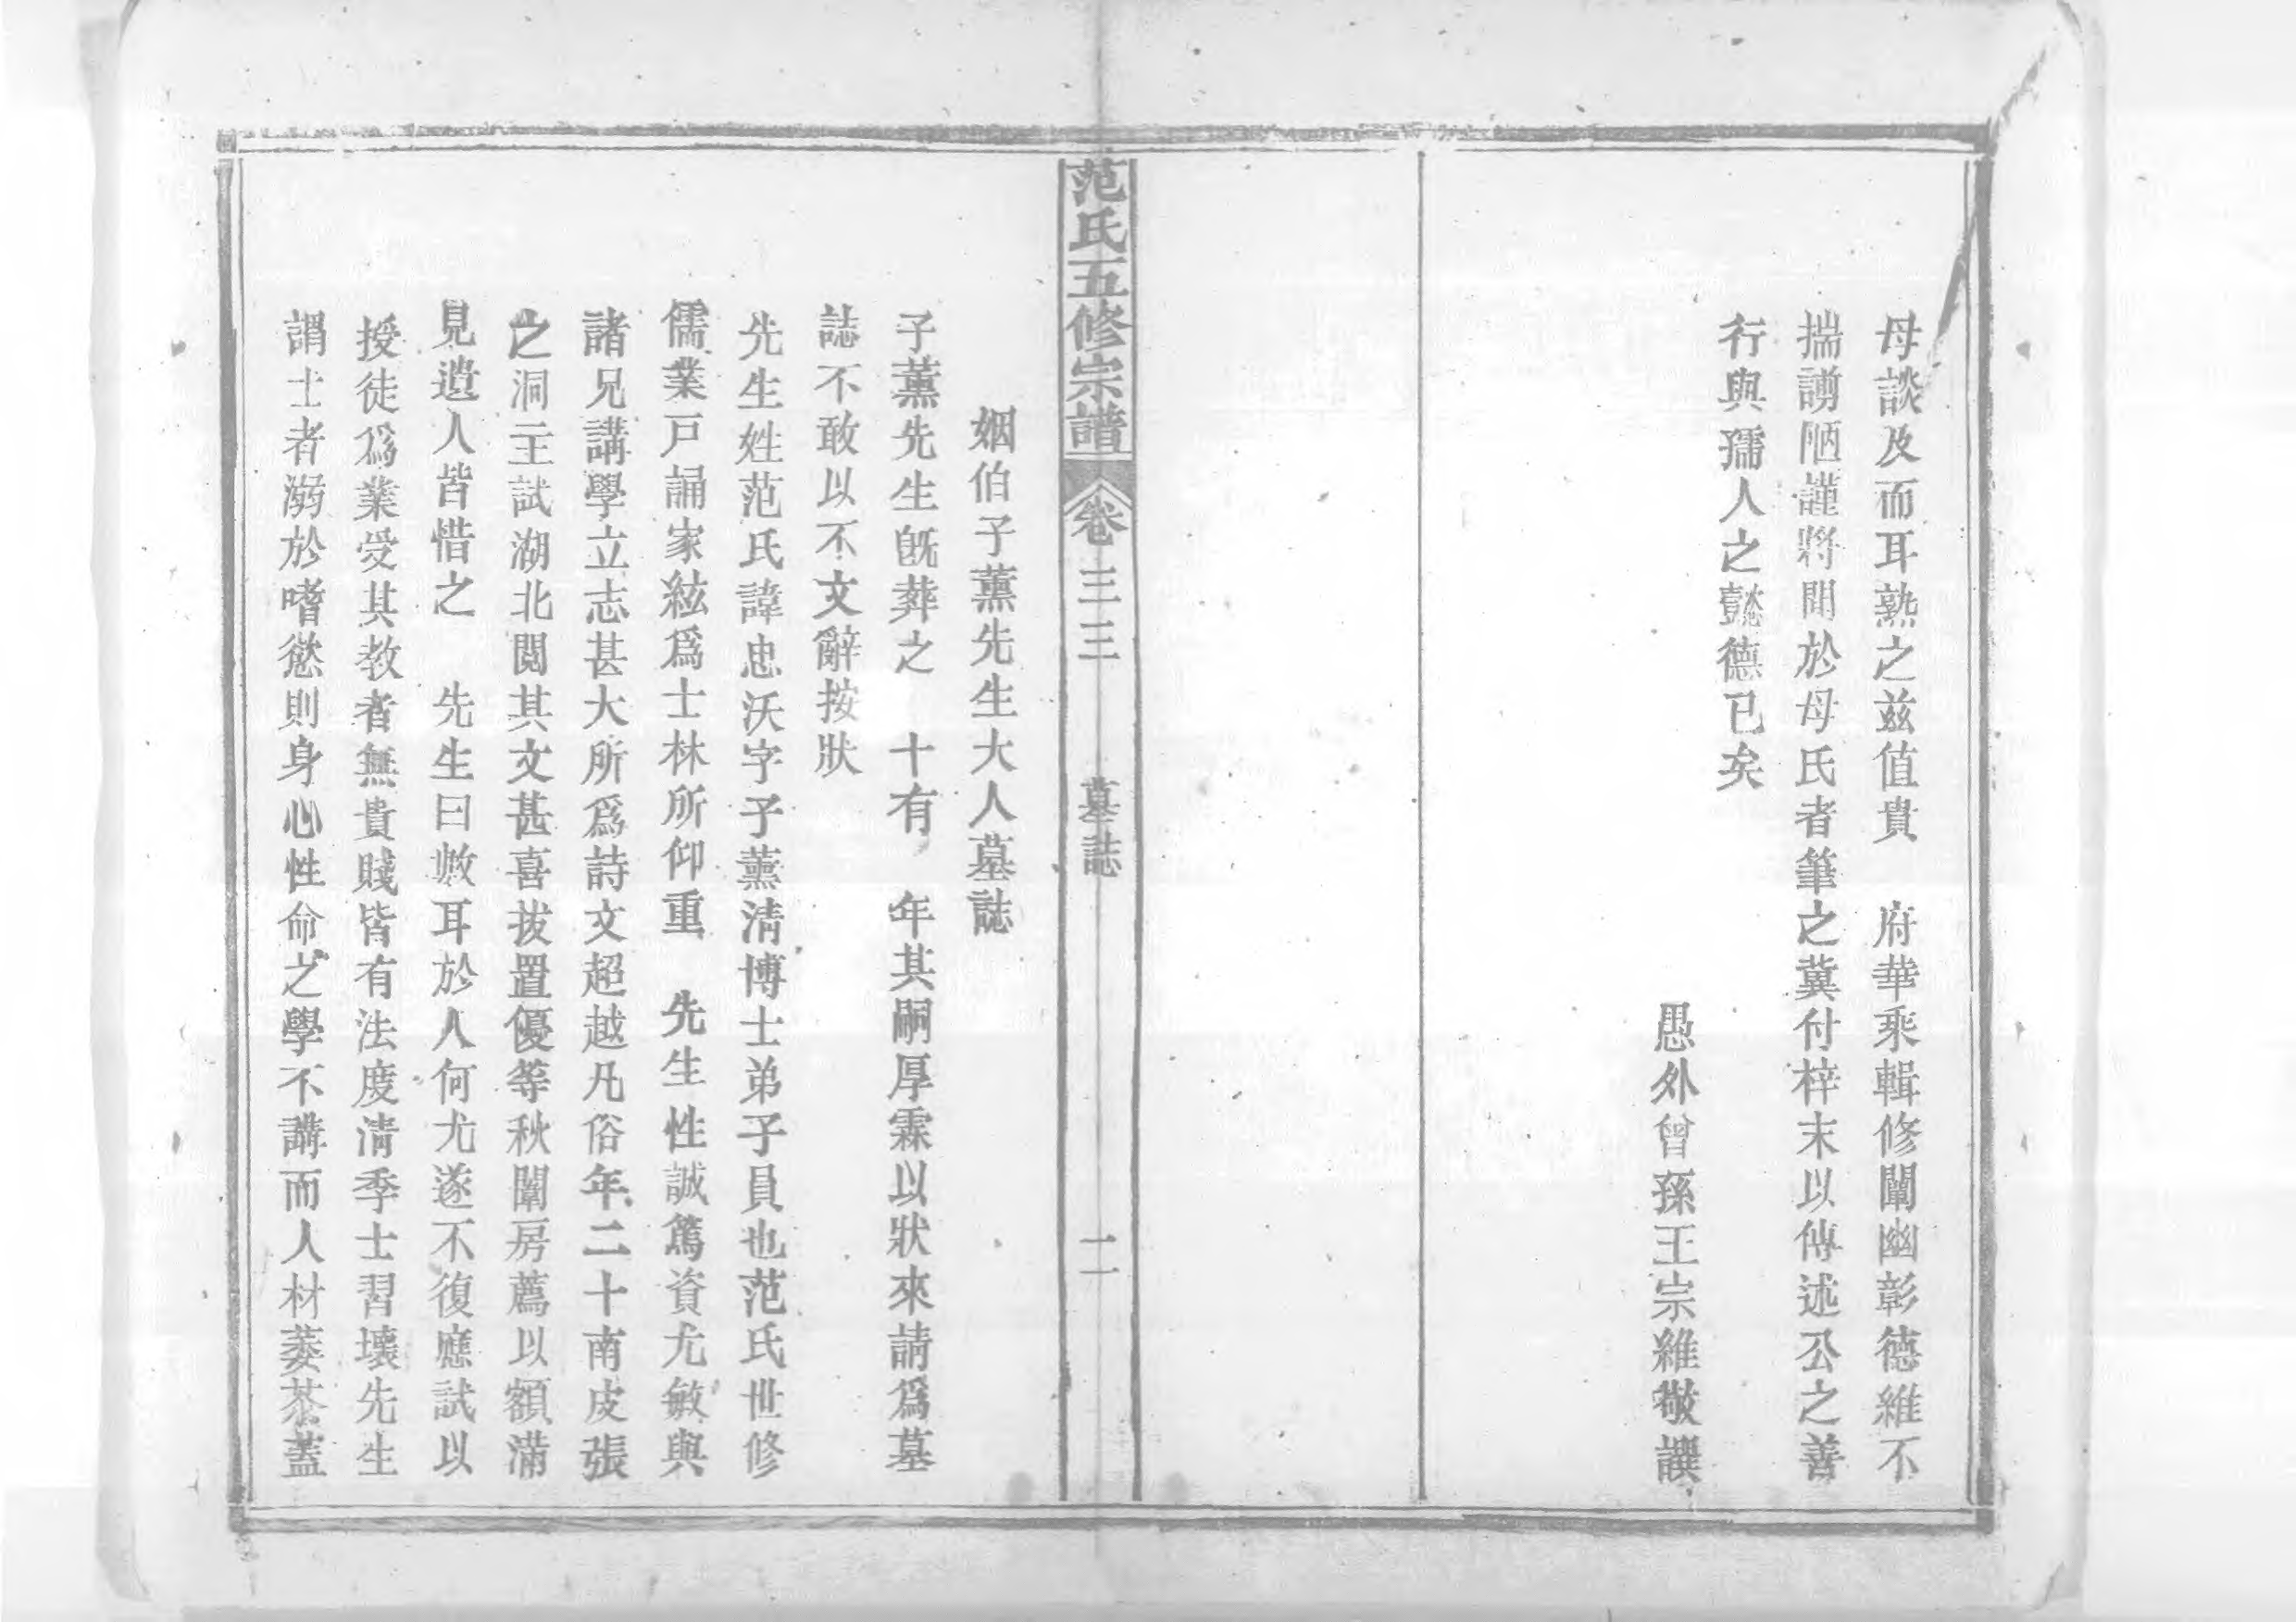 母談及而耳熟之兹值貴　府華乘輯修闡幽彰德維不
揣譾陋謹將聞於母氏者筆之冀付梓末以傳述公之善
行與孺人之懿德已矣
愚外曾孫王宗維敬譔
范氏五修宗譜
卷三三
墓誌
二
姻伯子薰先生大人墓誌
子薰先生旣葬之　十有　年其嗣厚霖以狀來請爲墓
誌不敢以不文辭按狀
先生姓范氏諱忠沃字子薰淸博士弟子員也范氏世修
儒業戸誦家絃爲士林所仰重　先生性誠篤資尤敏與
諸兄講學立志甚大所爲詩文超越凡俗年二十南皮張
之洞主試湖北閱其文甚喜拔置優等秋闈房薦以額滿
見遺人皆惜之　先生曰數耳於人何尤遂不復應試以
授徒爲業受其教者無貴賤皆有法度淸季士習壞先生
謂士者溺於嗜慾則身心性命之學不講而人材萎苶蓋